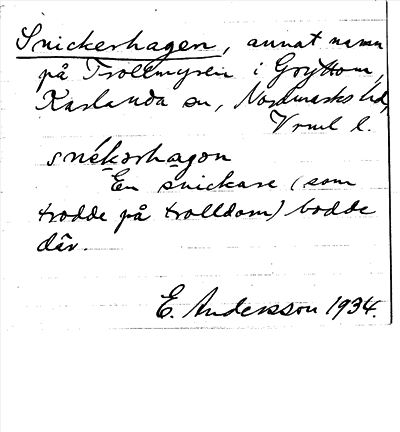 Snickerhagen, annat namn
på Trollmyren i Gryttom,
Karlanda sn, Nordmarks hd,
Vrml l.
snékərhagən
En snickare (som
trodde på trolldom) bodde
där.
E. Andersson 1934.